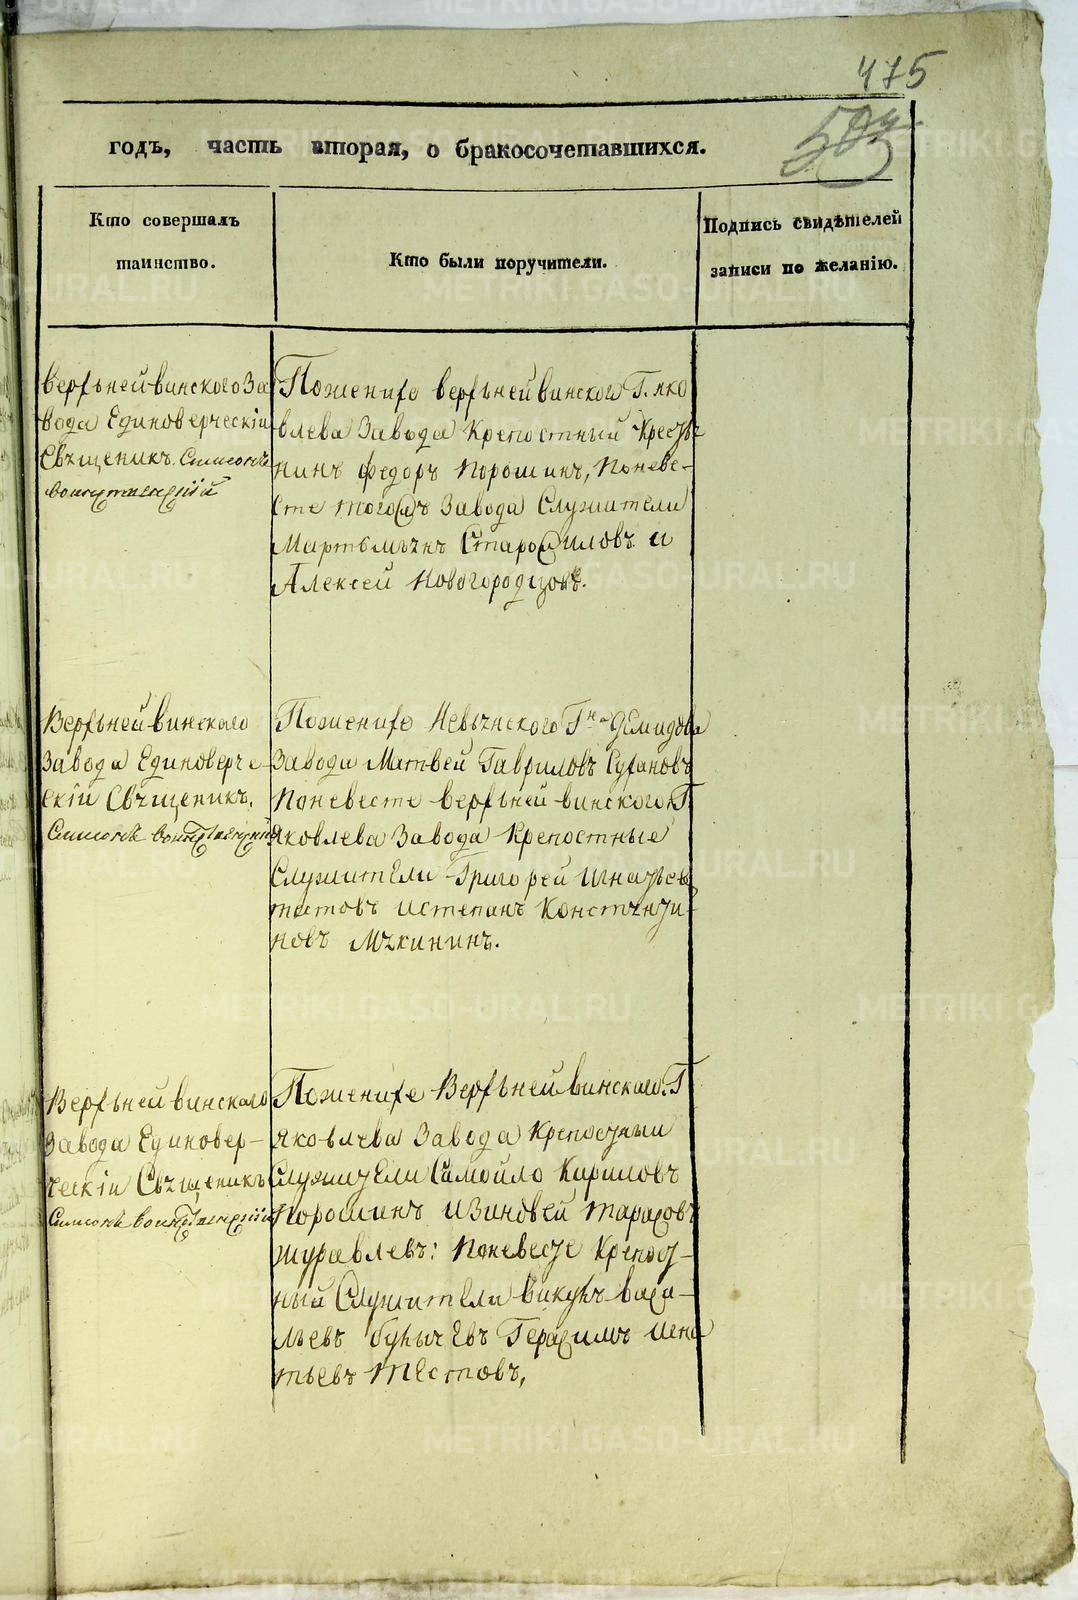 475
годъ, часть вторая, о бракосочетавшихся.
Кто совершалъ
таинство.
Кто были поручители.
Подпись свидѣтелей
записи по желанію.
Верхнейвинского За
вода Единоверческiи
Священикъ. Симеонъ
Пожениху верхнейвинского Г. яко
влева Завода Крепостный Кресть
нинъ Федоръ Порошинъ, Поневе-
сте тогожъ Завода Служители
Мартемьянъ Старожиловъ и
Алексей Новогородцовъ.
Верхнейвинскаго
Завода Единоверче-
скiи Священикъ.
Симеонъ
Пожениху Невьянского Гна Демидова
Завода Матвей Гавриловъ Сухановъ
Поневесте верхнейвинского Г.
Яковлева Завода Крепостные
Служители Григорей Игнатьевъ
тестовъ истепанъ Констянти-
новъ Мякининъ.
Верхнейвинскаго
Завода Единовер-
ческiи Священикъ
Симеонъ
Пожениху Верхнейвинскаго Г
Яковлева Завода Крепостныи
Служители Самойло Кириловъ
Порошинъ изиновей тарасовъ
журавлевъ: Поневесте Крепост-
ный Служители викулъ васи-
льевъ Герасимъ игна
тьевъ тестовъ,
METRIKI.GASO-URAL.RU